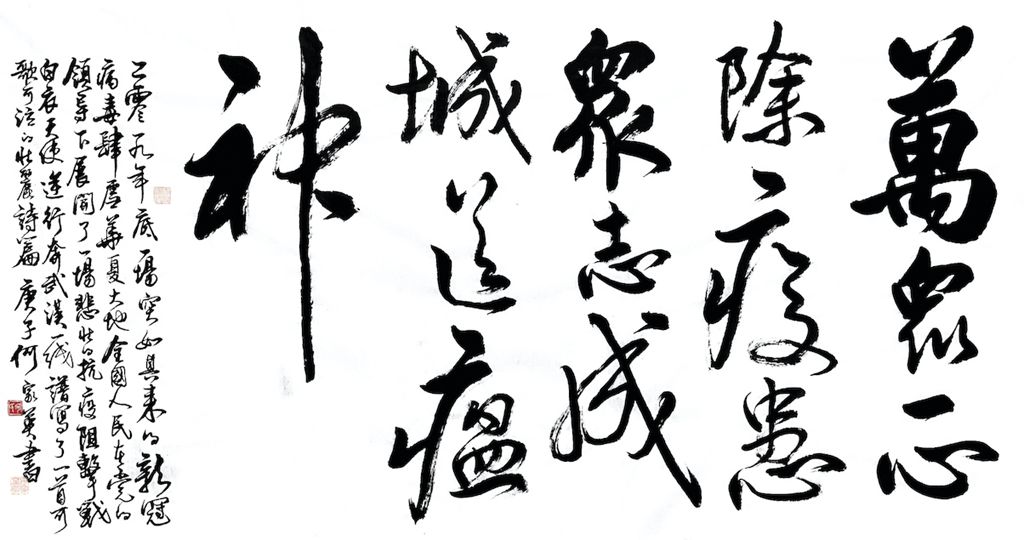 萬眾一心
除疫患
眾志成
城送瘟
神
二零一九年底一場突如其来的新冠
病毒肆虐華夏大地全國人民在党的
領导下展開了一場悲壯的抗疫阻擊戰
白衣天使逆行奔武漢一线譜寫了一首可
歌可泣的壯麗詩篇 庚子何家英書